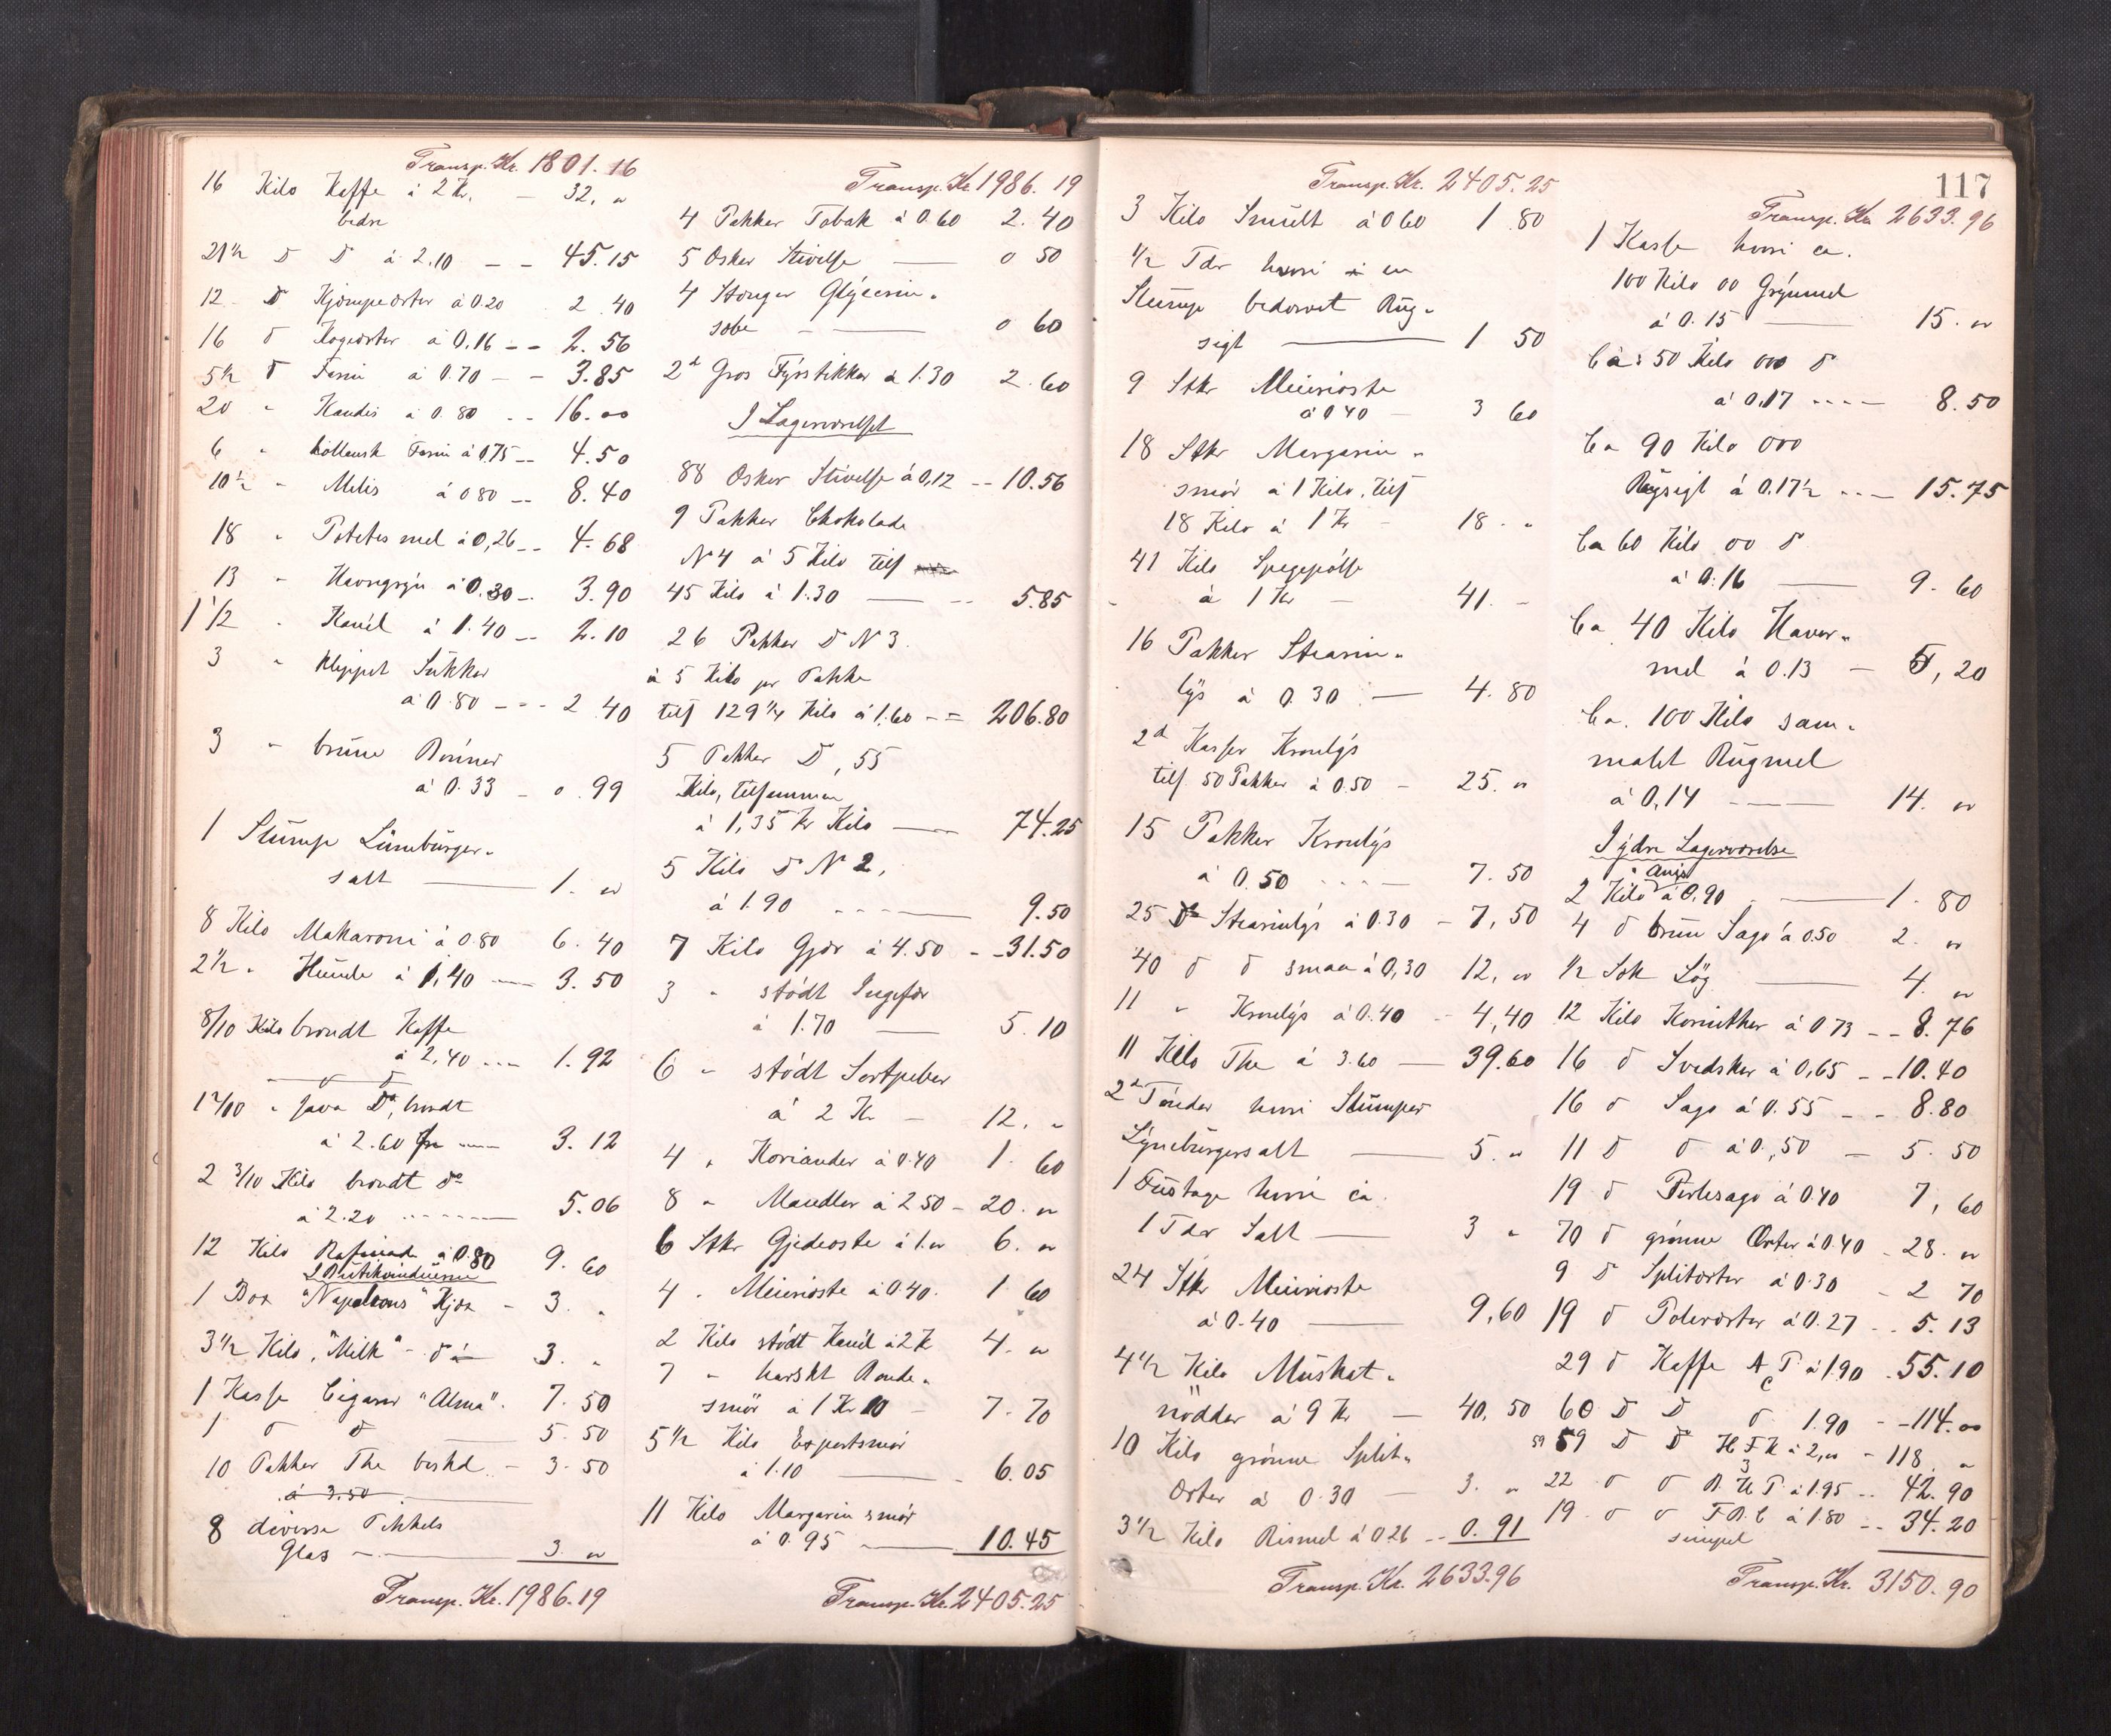 Transp. Kr. 1801.16
16 Kilo Kaffe à 2 Kr. — 32, "
bedre
21½ D D à 2.10 – – 45.15
12 – D Kjæmpeærter à 0.20 2.40
16 D Kogeærter à 0,16 – – 2.56
5½ D Farin à 0.70 – – 3.85
20 " Kandis à 0.80 – – 16.00
6 " hollansk Farin à 0.75 – – 4.50
10½ " Melis à 0.80 – – 8.40
18 " Potetesmel à 0,26 – – 4.68
13 " Havregryn à 0.30 – 3.90
1½ " Kanél à 1.40 – – 2.10
3 " klippet Sukker
à 0.80 – – – 2.40
3 " brune Bönner
à 0.33 – 0.99
1 Stump Lüneburger-
salt — 1. "
8 Kilo Makaroni à 0.80 6.40
2½ " Humle à 1,40 — 3.50
8/10 Kilo brændt Kaffe
à 2,40 – – – 1.92
1 2/10 " Java Do, brændt
à 2.60 — 3.12
2 3/10 Kilo brændt do
à 2.20 – – – – 5.06
12 Kilo Rafinade à 0.80 9.60
I Butikvinduerne
1 Box "Napoleons" Kjæx – 3. "
3½ Kilo "Milk" - do — 3. "
1 Kasse Cigarer "Alma" . 7.50
1 D D — 5.50
10 Pakker The beskd. – 3.50
à 3.50
8 diverse Pikkels
Glas — 3. "
Transp. Kr. 1986.19
Transp. Kr. 1986.19
4 Pakker Tobak à 0.60 2.40
5 Æsker Stivelse — 0 50
4 Stænger Glycerin-
sæbe — 0 60
2 d Gros Fyrstikker à 1.30 2.60
I Lagerværelset
88 Æsker Stivelse à 0,12 – – 10.56
9 Pakker Chokolade
N 4 à 5 Kilo tils
45 Kilo à 1.30 — 5.85
26 Pakker D N 3.
à 5 Kilo pr Pakke
tils 129¼ Kilo à 1.60 – – 206.80
5 Pakker D, 55
Kilo, tilsammen
à 1,35 Kr Kilo — 74.25
5 Kilo D N 2,
à 1.90 — 9.50
7 Kilo Gjær à 4.50 – – 31.50
3 " stødt Ingefær
à 1.70 — 5.10
6 " stødt Sortpeber
à 2 Kr – 12. "
4 " Koriander à 0.40 1.60
8 " Mandler à 2 50 – 20. "
6 Stkr Gjedeoste à 1. " 6. "
4 " Meierioste à 0.40. 1 60
2 Kilo stødt Kanél à 2 K 4. "
7 " harskt Bonde-
smör à 1 Kr 10 – 7.70
5½ Kilo Exportsmør
à 1.10 — 6.05
11 Kilo Margarin smør
à 0.95 — 10.45
Transp. Kr. 2405.25
Transp. Kr. 2405.25
3 Kilo Smult à 0 60 1.80
½ Tdr hvori en
Slump bedærvet Rug-
sigt — 1 50
9 Stkr Meierioste
à 0 40 – 3 60
18 Stkr Margarin-
smör à 1 Kilo, tils
18 Kilo à 1 Kr – 18. "
41 Kilo Spegepölse
à 1 Kr — 41. –
16 Pakker Stearin-
lys à 0.30 — 4.80
2 d Kasser Kronlys
tils. 50 Pakker à 0.50 – 25. "
15 Pakker Kronlys
à 0.50 – – – 7.50
25 D Stearinlys à 0.30 – 7,50
40 D D smaa à 0,30 12, "
11 " Kronlys à 0.40 – 4,40
11 Kilo The à 3.60 — 39.60
2 d Tönder hvori Slumper
Lyneburgersalt — 5. "
1 Fustage hvori ca.
1 Tdr Salt — 3 "
24 Stkr Meierioste
à 0.40 — 9,60
4½ Kilo Muskat-
nödder à 9 Kr — 40,50
10 Kilo grönne Split-
Ærter à 0.30 — 3. "
3½ Kilo Rismel à 0.26 – – 0.91
Transp. Kr. 2633.96
117
Transp. Kr. 2633.96
1 Kasse hvori ca.
100 Kilo 00 Grynmel
à 0.15 — 15. "
Ca: 50 Kilo 000 D
à 0,17 – – – 8.50
Ca 90 Kilo 000
Rugsigt à 0.17½ – – – 15.75
Ca 60 Kilo 00 D
à 0.16 — 9.60
Ca 40 Kilo Haver-
mel à 0.13 — 5,20
Ca. 100 Kilo sam-
malet Rugmel
à 0,14 — 14. "
I ydre Lagerværelse
2 Kilo Anis à 0,90 — 1.80
4 D brun Sago à 0.50 2. "
½ Sæk Løg — 4. "
12 Kilo Korinther à 0 73 – – 8.76
16 D Svedsker à 0,65 – – 10.40
16 D Sago à 0.55 – – 8.80
11 D D à 0,50 – 5.50
19 D Perlesago à 0.40 7,60
70 D grønne Ærter à 0.40 – 28. "
9 D Splitærter à 0.30 – 2 70
19 D Polerærter à 0.27 – – 5.13
29 D Kaffe A C P à 1.90 . 55.10
60 D D D 1.90 – – 114.00
59 59 D D H F K à 2, " – 118. "
22 D D B. 3 K P. à 1.95 – – 42.90
19 D D F.B.C à 1.80 – – 34.20
simpel
Transp. Kr. 3150.90